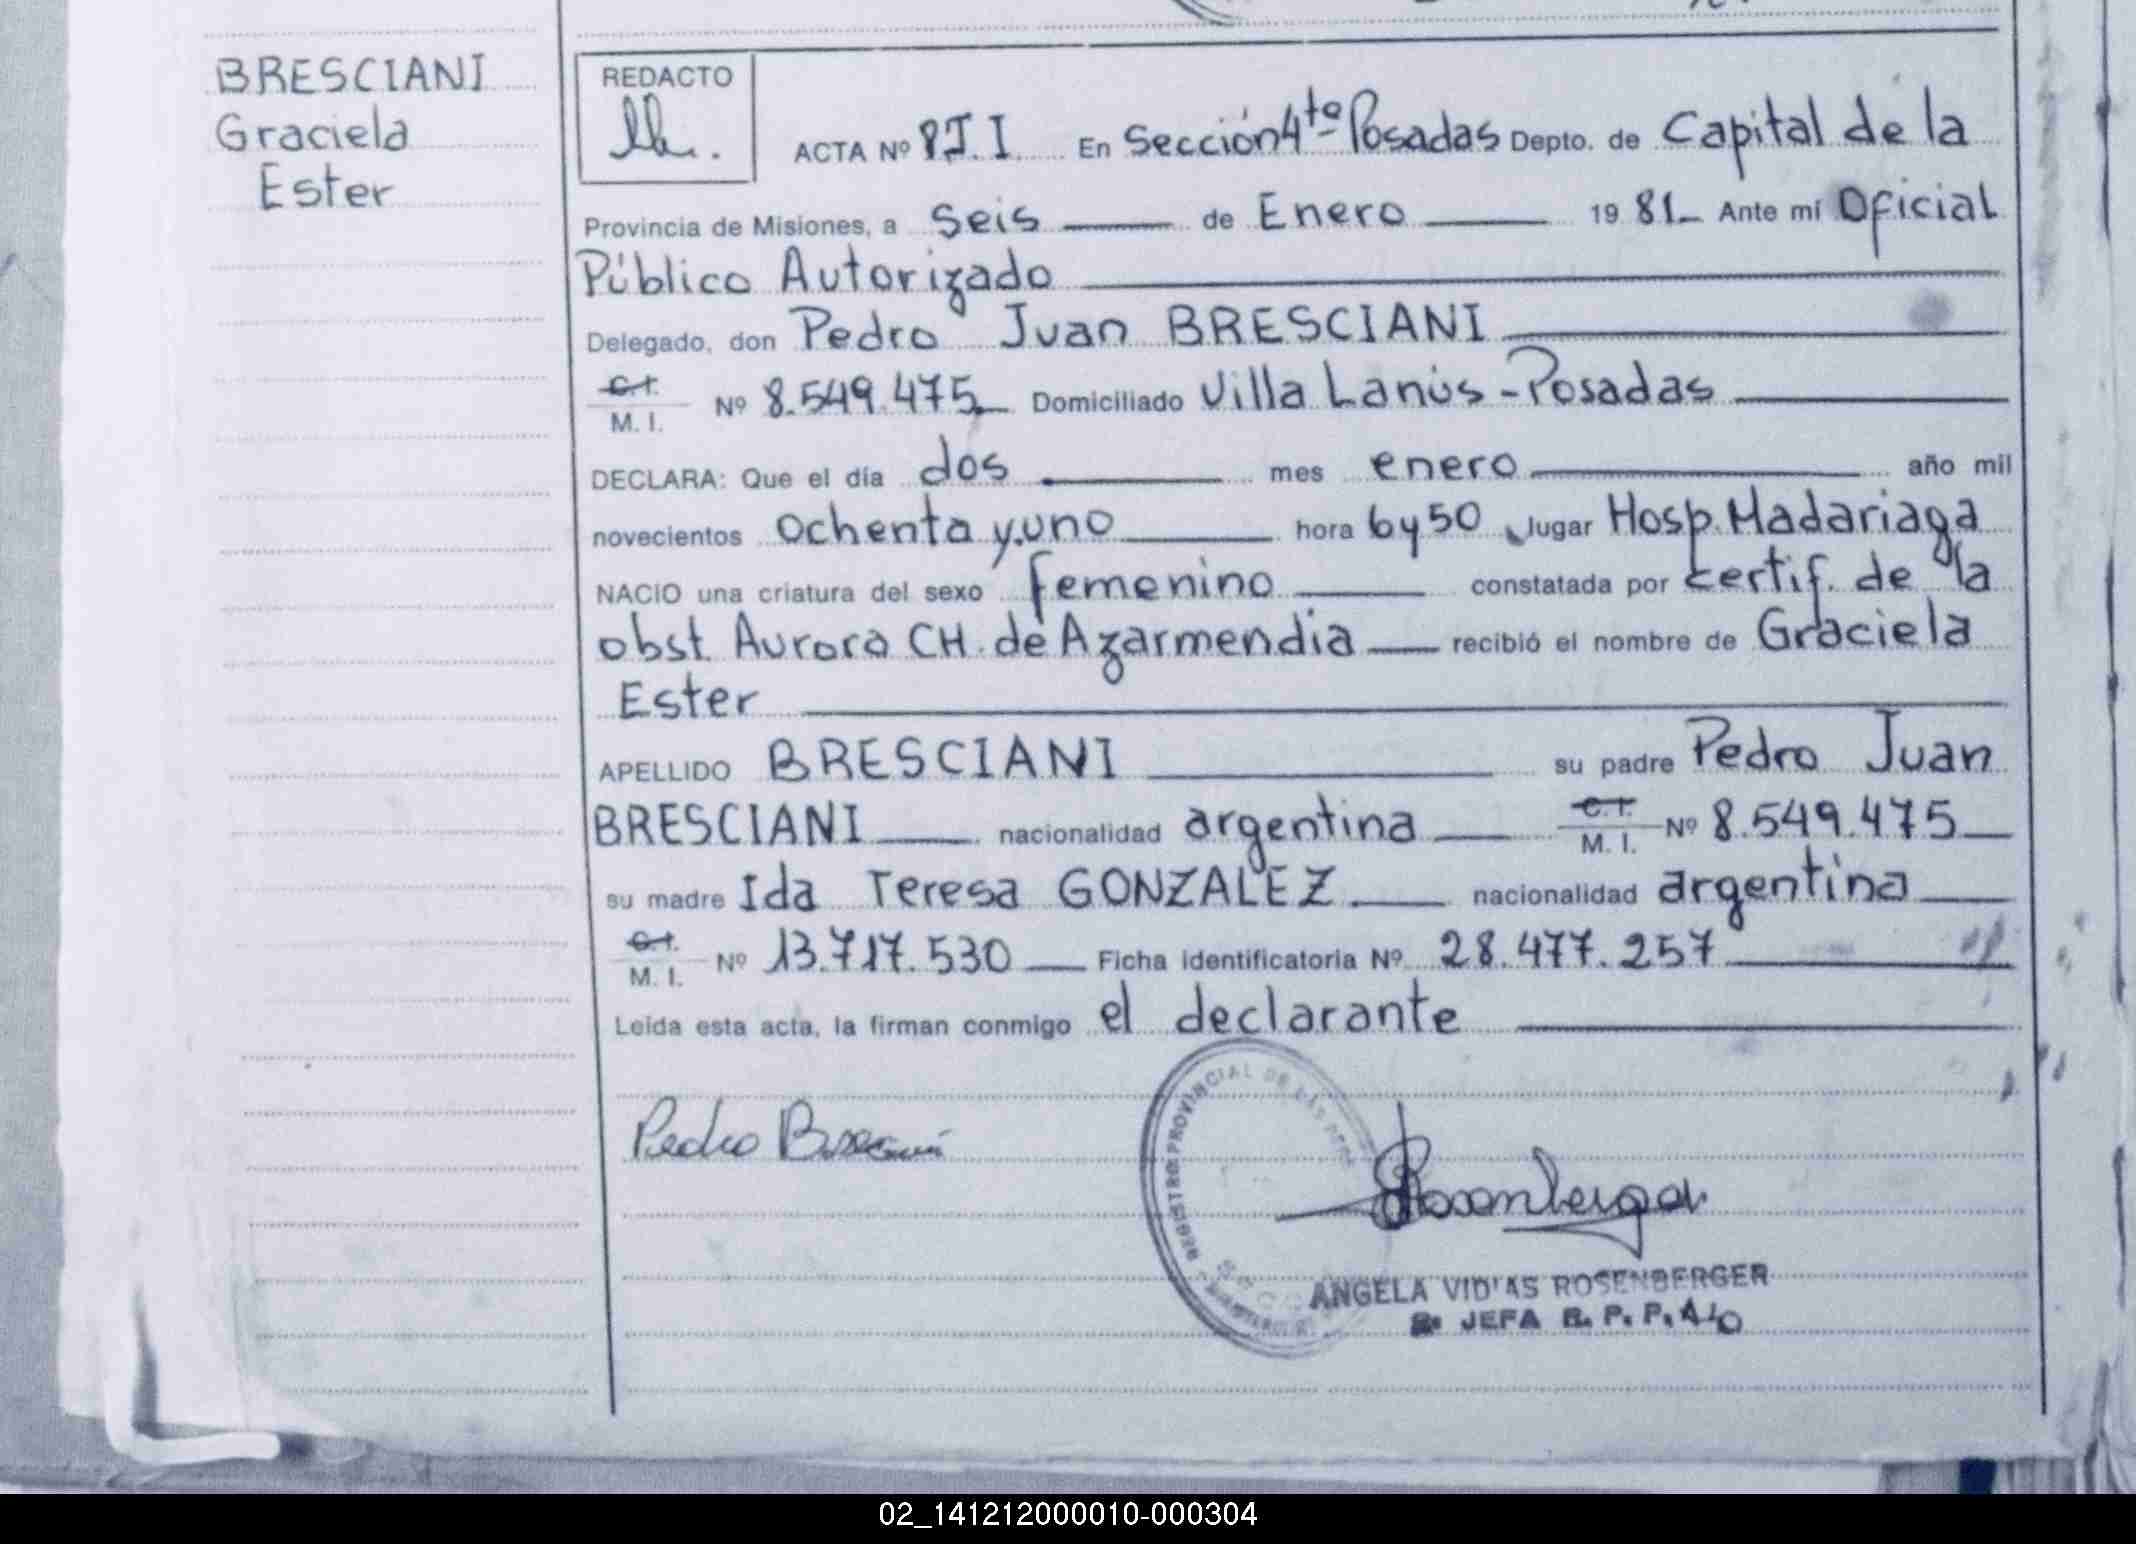 BRESCIANI
Graciela
Ester
REDACTO
ACTA Nº 8J.I. En Sección 4ta Posadas Depto. de Capital de la
Provincia de Misiones, a Seis de Enero 1981 Ante mí Oficial
Público Autorizado
Delegado, don Pedro Juan BRESCIANI
C.I.
M. I. Nº 8.549.475 Domiciliado Villa Lanús - Posadas
DECLARA: Que el día dos mes enero año mil
novecientos ochenta y uno hora 6 y 50 lugar Hosp. Madariaga
NACIO una criatura del sexo femenino constatada por certif. de la
obst. Aurora CH. de Azarmendia recibió el nombre de Graciela
Ester
APELLIDO BRESCIANI su padre Pedro Juan
BRESCIANI nacionalidad argentina C.I. M. I. Nº 8.549.475
su madre Ida Teresa GONZALEZ nacionalidad argentina
C.I.
M. I. Nº 13.717.530 Ficha identificatoria Nº 28.477.257
Leída esta acta, la firman conmigo el declarante
Pedro Bresciani
REGISTRO PROVINCIAL DE LAS PERS
Rosenberger
ANGELA VIDIAS ROSENBERGER
JEFA R. P. P. 410
02_141212000010-000304